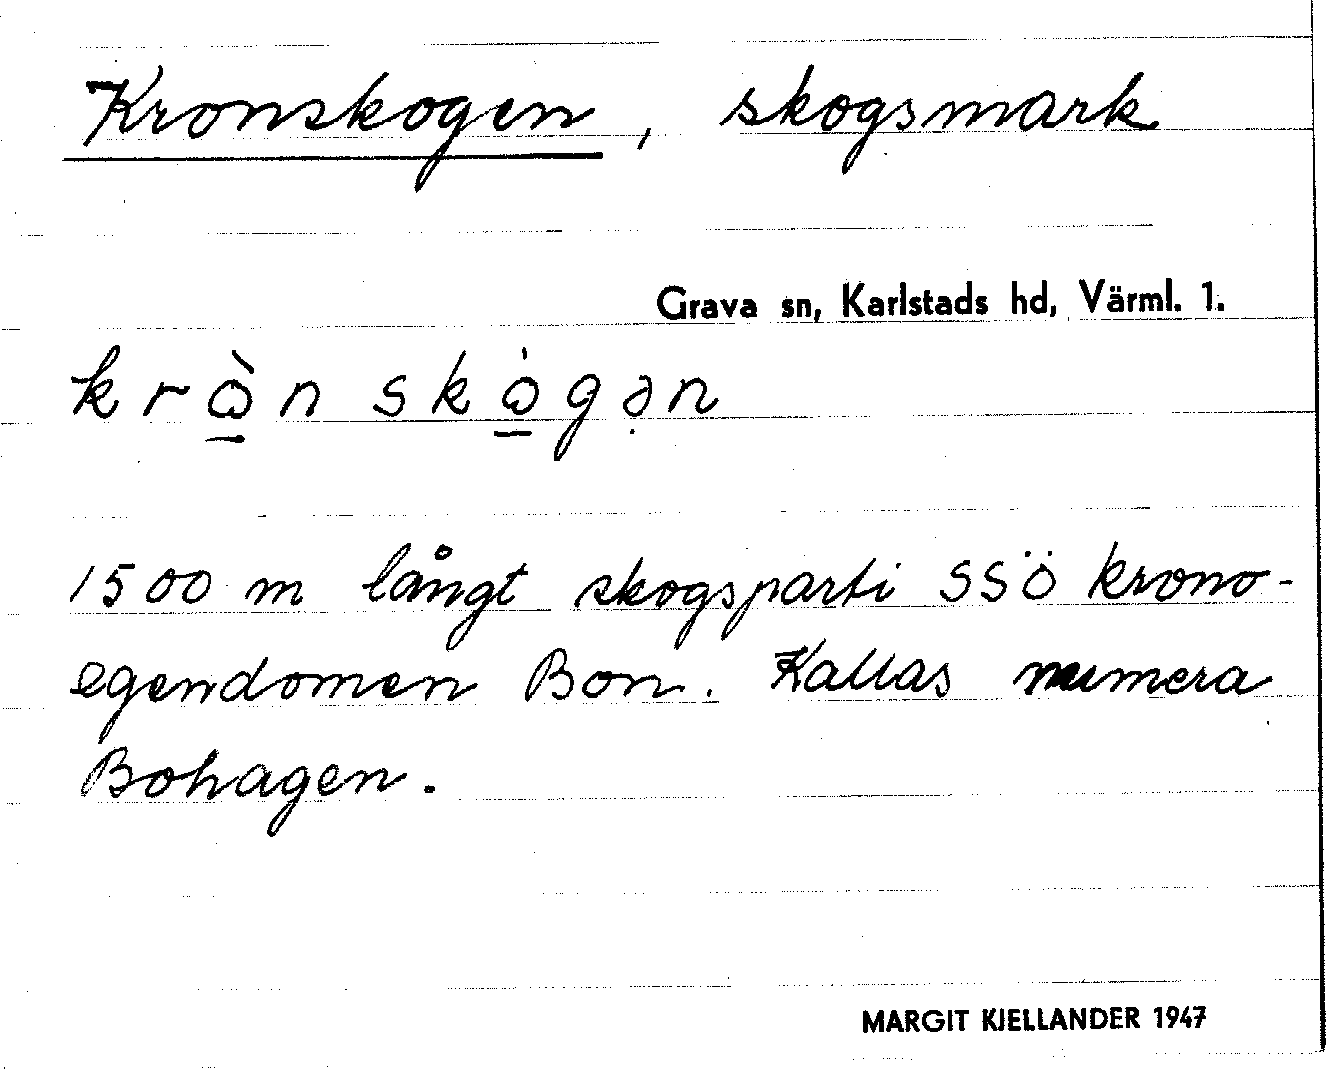 Kronskogen, skogsmark
Grava sn, Karlstads hd, Värml. l.
1500 m långt skogsparti SSÖ krono-
egendomen Bon. Kallas numera
Bohagen.
MARGIT KJELLANDER 1947